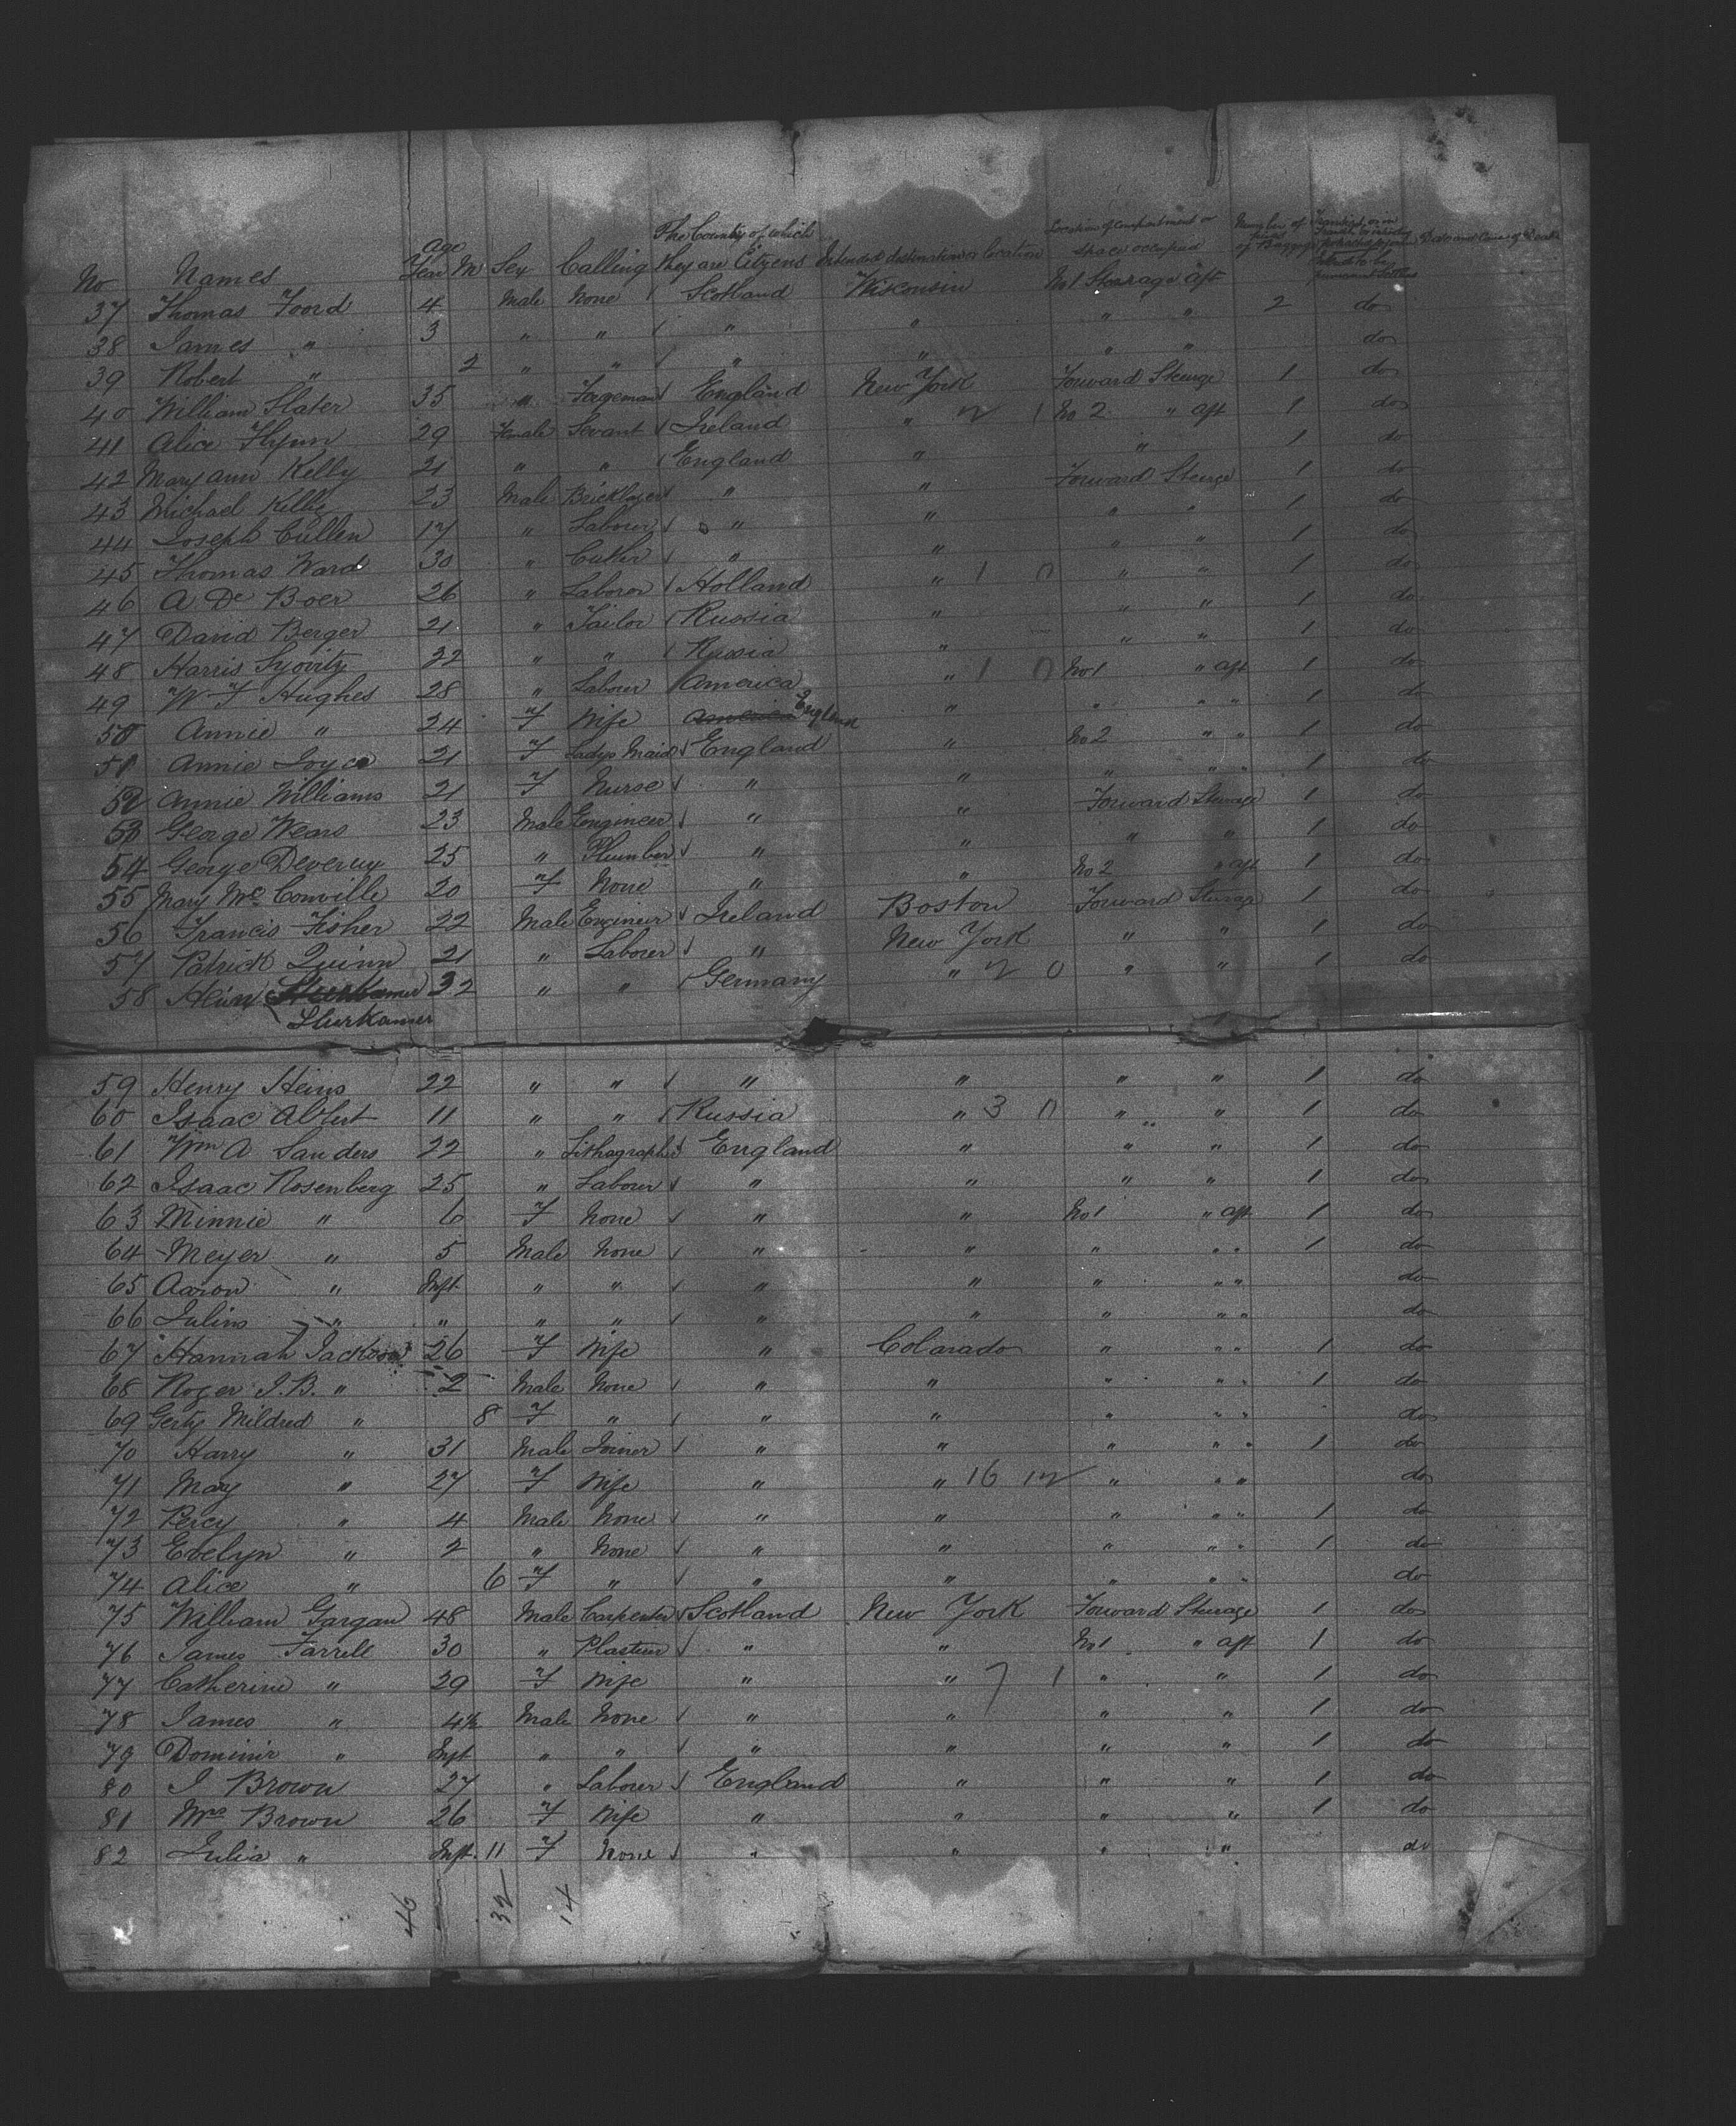 No Names Age Year M Sex Calling The Country of which they are Citizens Intended destination or location Location of compartment or space occupied Number of pieces of Baggage Date and Cause of Death
37 Thomas Foord 4 Male None / Scotland Wisconsin No 1 Stearage aft
38 James " 3 " " / " " " " 2 do
39 Robert " 2 " " / " " " " do
40 William Slater 35 " Forgeman / England New York Forward Steerge 1 do
41 Alice Flynn 29 Female Servant / Ireland " 2 1 No 2 " aft 1 do
42 Mary ann Kelly 21 " " / England " " 1 do
43 Michael Kelly 23 Male Bricklayer / " " Forward Steerge 1 do
44 Joseph Cullen 17 " Labourer / " " " " 1 do
45 Thomas Ward 30 " Cutler / " " " " 1 do
46 A De Boer 26 " Laborer / Holland " 1 0 " " 1 do
47 David Berger 21 " Tailor / Russia " " " 1 do
48 Harris 22 " " / Russia " " " 1 do
49 W F Hughes 28 " Labourer / America " 1 0 No 1 " aft 1 do
50 Annie " 24 F Wife America England " " " " 1 do
51 Annie Joyce 21 F Ladys Maid / England " No 2 " " 1 do
52 Annie Williams 21 F Nurse / " " " " " 1 do
53 George Wears 23 Male Engineer / " " Forward Steerage 1 do
54 George Deverux 25 " Plumber / " " " " 1 do
55 Mary McConville 20 F None " " No 2 " aft 1 do
56 Francis Fisher 22 Male Engineer / Ireland Boston Forward Sterage 1 do
57 Patrick Quinn 21 " Laborer / " New York " " 1 do
58 Hein 32 " " / Germany " 2 0 " " 1 do
Sturkamer
59 Henry Heins 22 " " / " " " " 1 do
60 Isaac Albert 11 " " / Russia " 3 0 " " 1 do
61 Wm A Sanders 22 " Lithographer / England " " " 1 do
62 Isaac Rosenberg 25 " Labourer / " " " " 1 do
63 Minnie " 6 F None / " " No 1 " aft 1 do
64 Meyer " 5 Male None / " " " " " 1 do
65 Aaron " Inft " " / " " " " " do
66 Julius " " " " / " " " " " do
67 Hannah Jackson 26 F Wife " Colarado " " " 1 do
68 Roger J.B. " 2 Male None / " " " " " 1 do
69 Gerty Mildred " 8 F " / " " " " " do
70 Harry " 31 Male Joiner / " " " " " 1 do
71 May " 27 F Wife " " 16 12 " " " do
72 Percy " 4 Male None / " " " " " 1 do
73 Evelyn " 2 " None / " " " " " 1 do
74 Alice " 6 F " / " " " " " do
75 William Gargan 48 Male Carpenter / Scotland New York Forward Sterage 1 do
76 James Farrell 30 " Plasterer / " " No 1 " aft 1 do
77 Catherine " 29 F Wife " " 7 1 " " 1 do
78 James " 4½ Male None / " " " " 1 do
79 Dominic " Inft " " / " " " " 1 do
80 J Brown 27 " Labourer / England " " " 1 do
81 Mrs Brown 26 F Wife " " " " 1 do
82 Julia " Inft. 11 F None / " " " " do
46 32 14